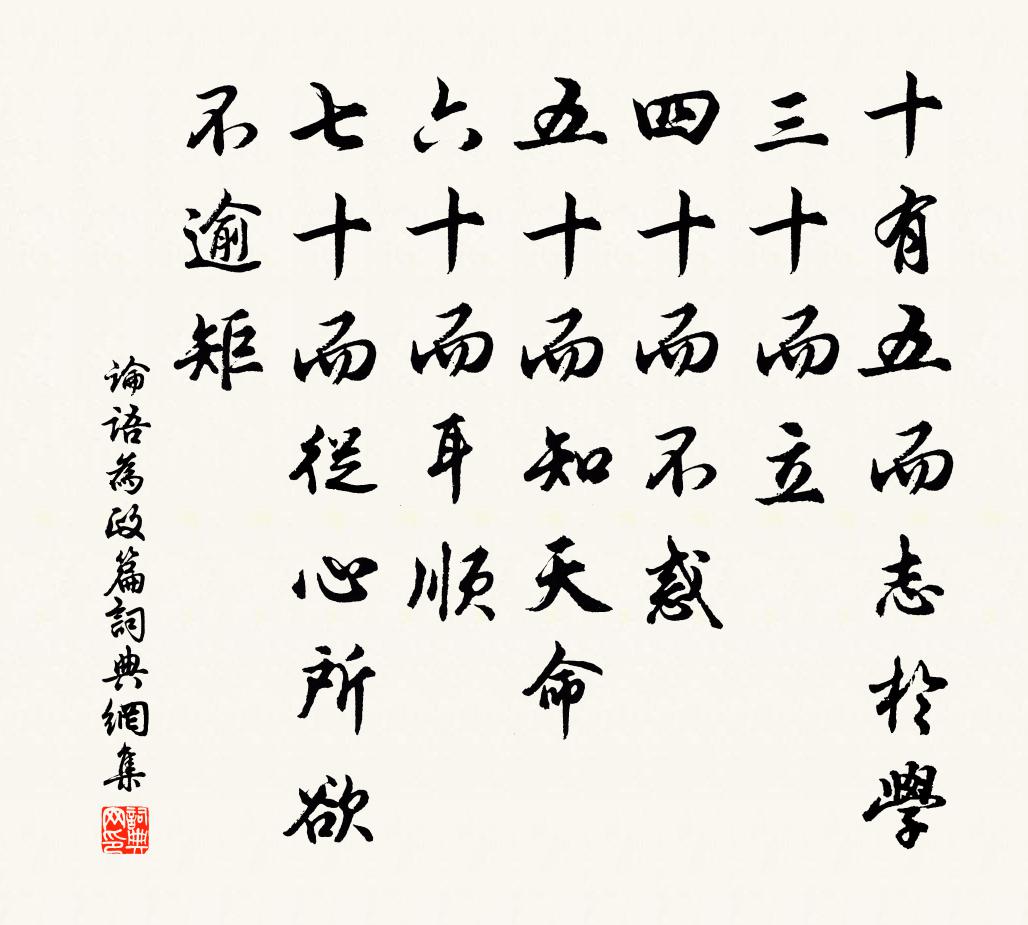 十有五而志於學
三十而立
四十而不惑
五十而知天命
六十而耳順
七十而從心所欲
不逾矩
論語為政篇詞典網集
詞典网印